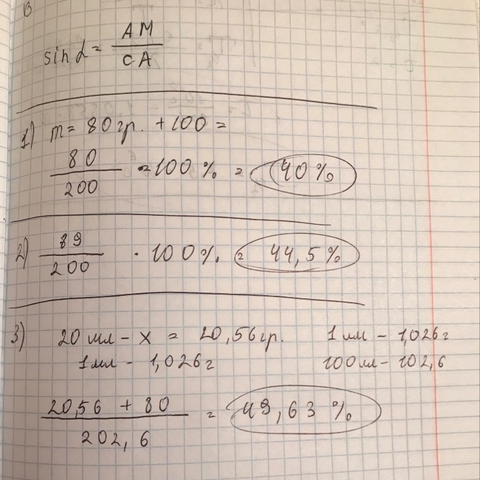 sin α = AM / CA
1) m = 80 гр. + 100 =
80 / 200 · 100 % = 40 %
2) 89 / 200 · 100 % = 44,5 %
3) 20 мл – x = 20,56 гр. 1 мл – 1,026 г
1 мл – 1,026 г 100 мл – 102,6
20,56 + 80 / 202,6 = 49,63 %